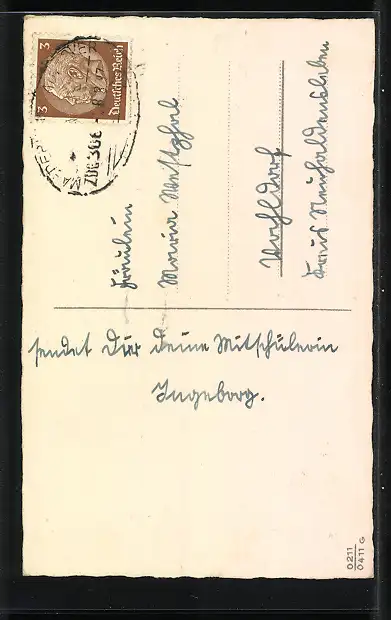 3 3
Deutsches Reich
ZUG 366
Fräulein
Maria Westphal
Wahldorf
Kreis Neuhaldensleben
sendet Dir Deine Mitschülerin
Ingeborg.
0211
0411 G